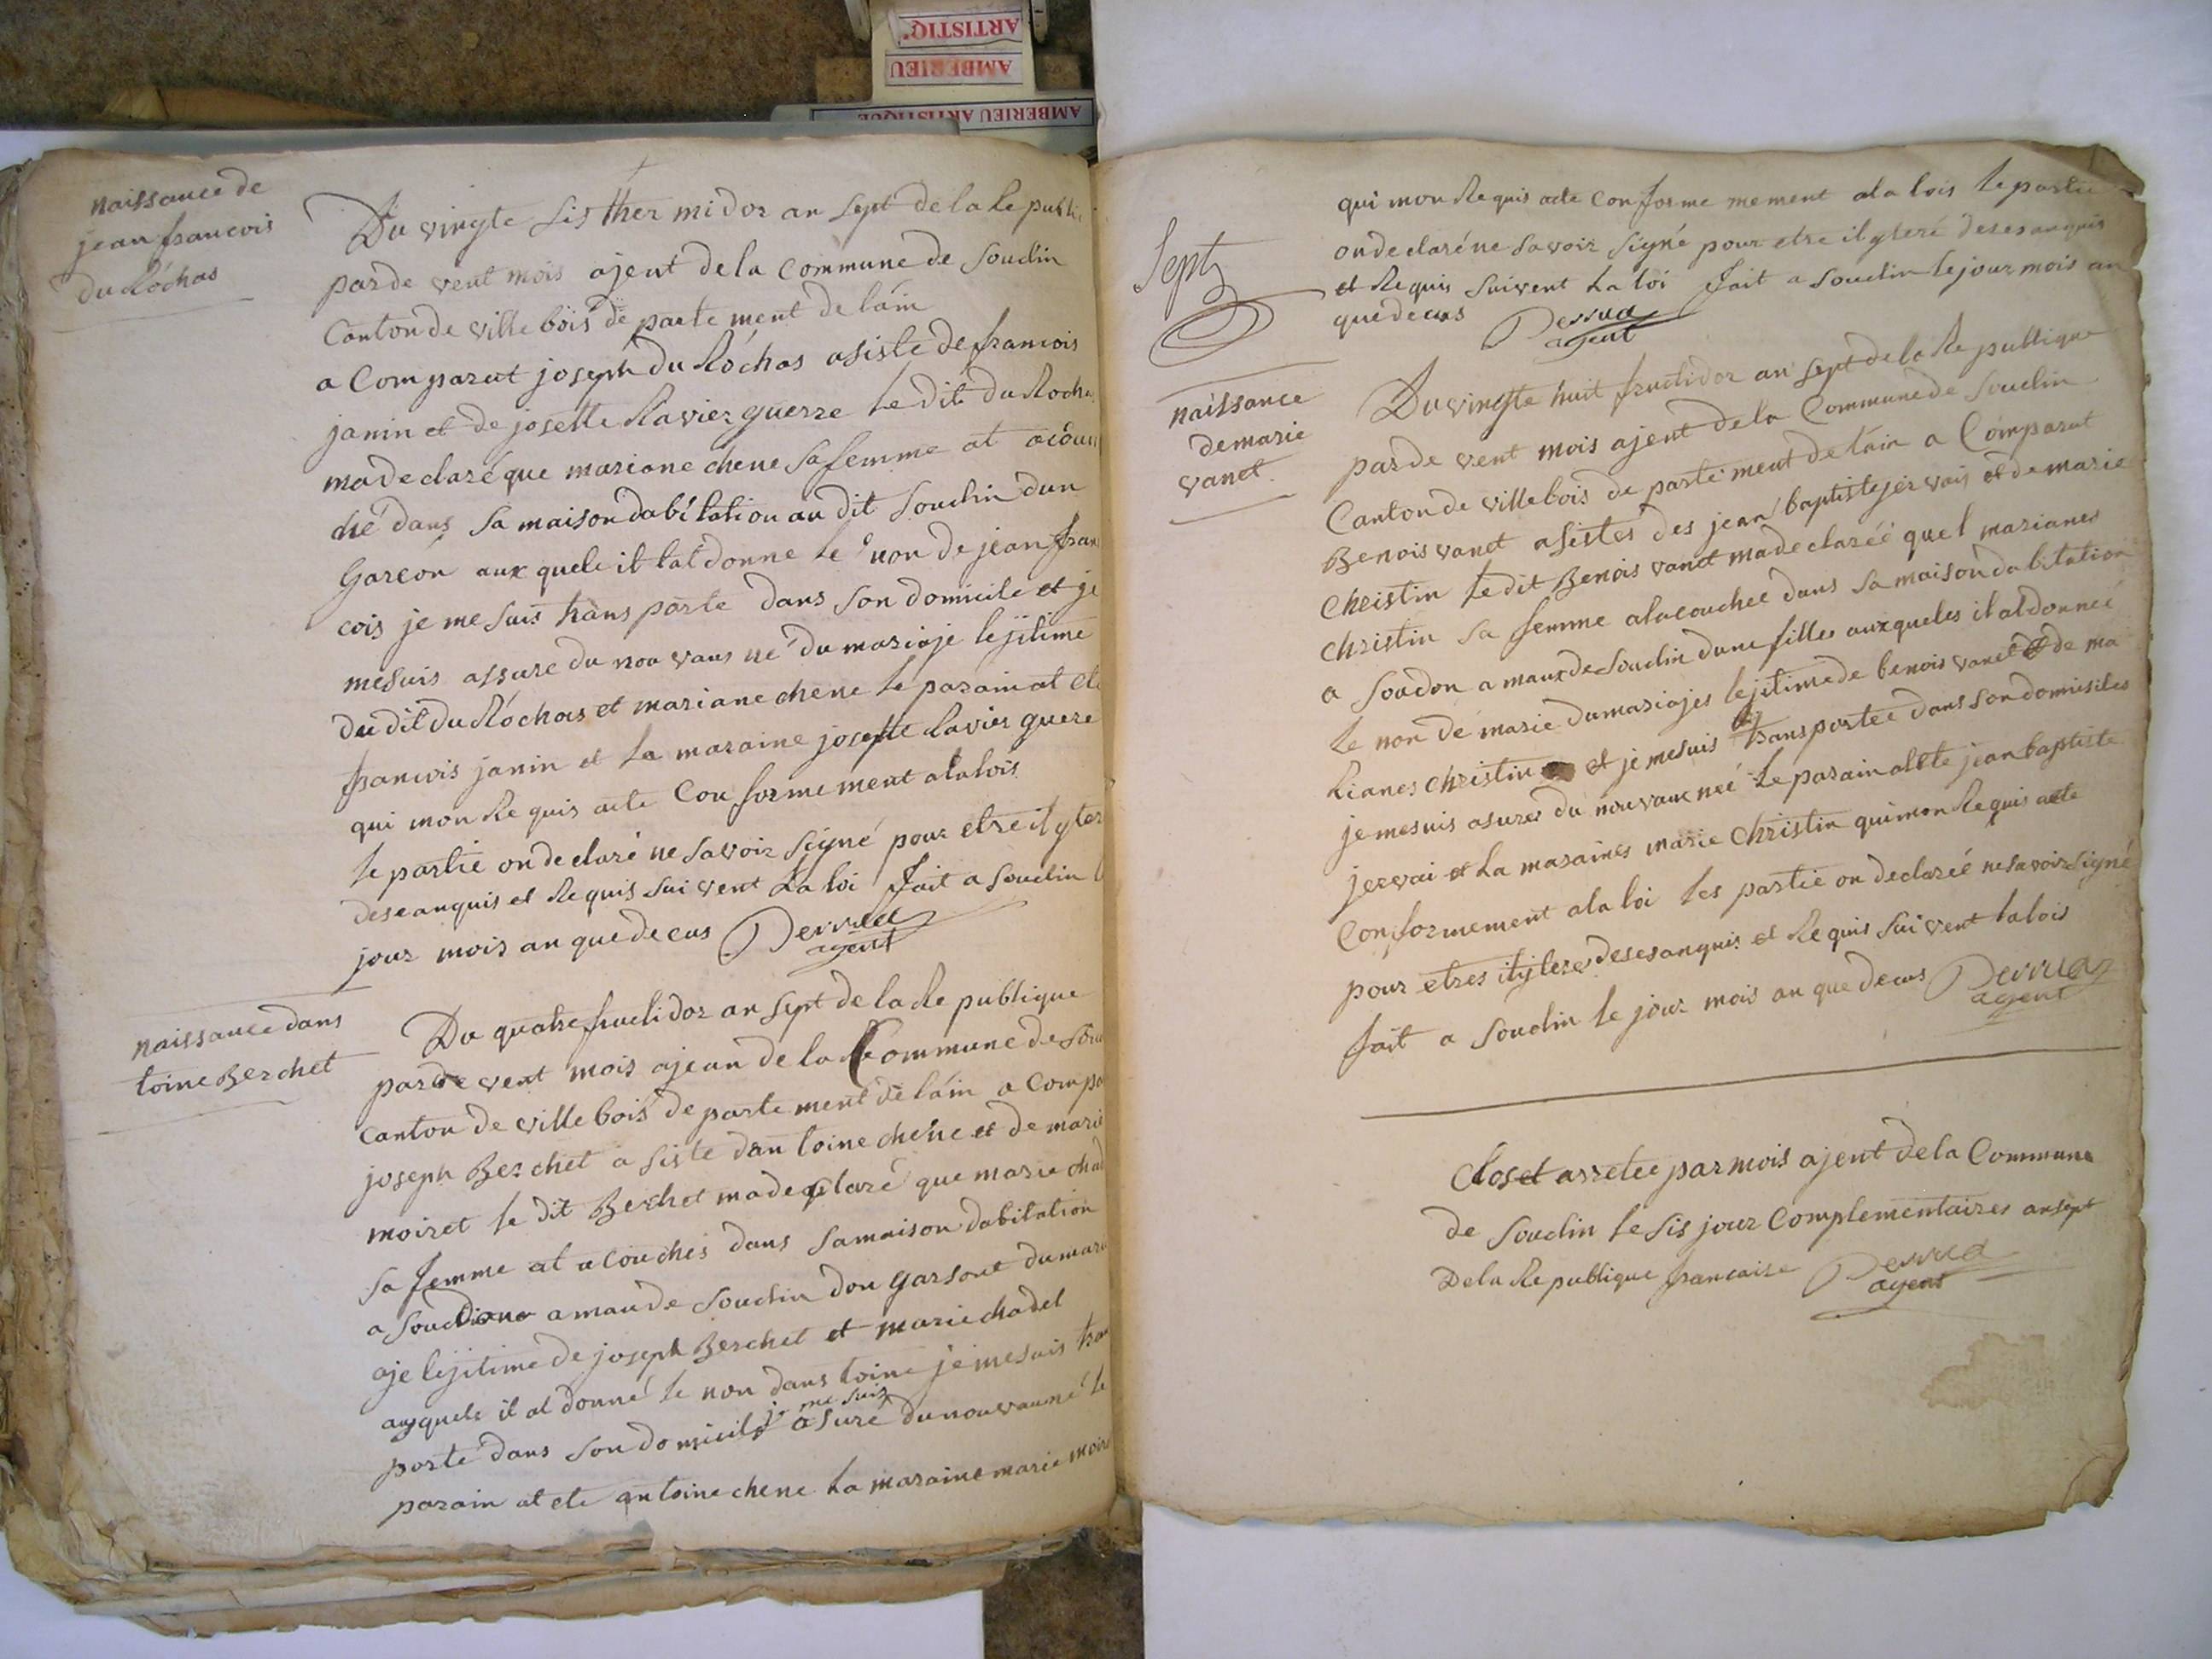 ARTISTIQ'
AMBERIEU
AMBERIEU ARTISTIQUE
naissance de
jean francois
du Róchas
Du vingte sis ther mi dor an sept de la Re publi
par de vent mois ajent de la commune de Souclin
Canton de ville bois de parte ment de lain
a Comparut joseph du Róchas asiste de francois
janin et de josette Ravier guerre le dit du Rocha
ma declaré que mariane chene sa femme at acouu
ché dans sa maison dabitation au dit Souclin dun
Garcon aux quele il lat donne le non de jean fran
cois je me suis trans porte dans son domicile et je
me suis assure du nou vaus né du mariaje lejitime
du dit du Róchas et mariane chene le parain at ete
francois janin et la maraine josette Ravier guere
qui mon Re quis acte Con forme ment a la lois
le partie on declaré ne savoir signé pour etre il yter
deseanquis et Re quis sui vent La loi fait a Souclin l
jour mois an que de cus Perrua
agent
naissance dans
toine Berchet
Du quatre fructi dor an sept de la Re publique
par de vent mois ajean de la Commune de Sou
canton de ville bois de parte ment de lain a compa
joseph Berchet a siste dan toine chene et de marie
moiret le dit Berchet ma declaré que marie chad
sa femme at a couches dans sa maison dabitation
a Soudon a mau de Souclin don garsont du mari
aje lejitime de joseph Berchet et marie chadel
auxquele il at donné le non dans toine je me suis tran
porté dans son domicile je me suis asuré du nouvau né le
parain at ete antoine chene La maraine marie moire
Sept
qui mon Re quis acte con forme mement a la lois le partie
on declaré ne savoir signé pour etre il yteré desesanquis
et Re quis suivent La loi fait a Souclin le jour mois an
que de cus Perrua
agent
naissance
de marie
vanet
Du vingte huit fructidor an sept de la Re publique
par de vent mois ajent de la Commune de Souclin
Canton de villebois de parte ment de lain a Comparut
Benois vanet asistes des jean baptiste jervais et de marie
Christin le dit Benois vanet ma declaréé quel marianes
christin sa femme at acouchee dans sa maison dabitation
a Soudon a maux de Souclin dune filles auxqueles il at donneé
le non de marie du mariajes lejitime de benois vanet et de ma
Rianes christin et je me suis trans portee dans son domisiles
je mesuis asures du nouvaux neé le parain at ete jean baptiste
jervai et La maraines marie Christin qui mon Requis acte
Conformement a la loi les partie on declareé ne savoir signé
pour etres ityleres desesanquis et Re quis sui vent la lois
fait a Souclin le jour mois an que de cus Perrua
agent
Clos et arretee par mois ajent de la Commune
de Souclin le sis jour Complementaires an sept
De la Re publique francaise Perrua
agent